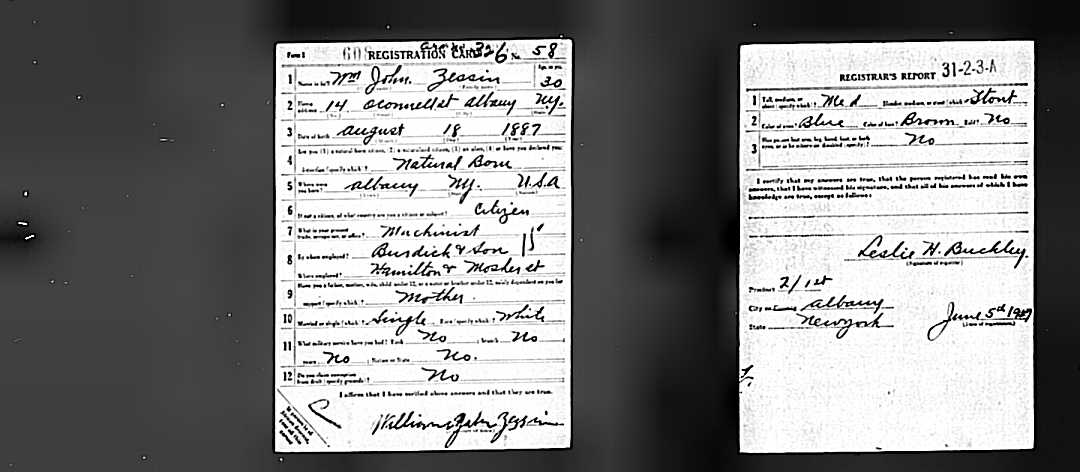 Form 1 608 REGISTRATION CARD 326 No. 58
1 Name in full Wm John. Zessin Age, in yrs. 30
2 Home address 14 oconnell st albany N.Y.
3 Date of birth august 18 1887
4 Are you (1) a natural born citizen, (2) a naturalized citizen, (3) an alien, (4) or have you declared your
intention (specify which)? Natural Born
5 Where were you born? albany N.Y. U.S.A
6 If not a citizen, of what country are you a citizen or subject? Citizen
7 What is your present trade, occupation, or office? Machinist
8 By whom employed? Burdick & Son
Where employed? Hamilton & Mosher st
9 Have you a father, mother, wife, child under 12, or a sister or brother under 12, solely dependent on you for
support (specify which)? Mother
10 Married or single (which)? Single Race (specify which)? White
11 What military service have you had? Rank No ; branch No
years No Nation or State No.
12 Do you claim exemption from draft (specify grounds)? No
I affirm that I have verified above answers and that they are true.
William John Zessin
REGISTRAR'S REPORT 31-2-3-A
1 Tall, medium, or short (specify which)? Med Slender, medium, or stout (which)? Stout
2 Color of eyes? Blue Color of hair? Brown Bald? No
3 Has person lost arm, leg, hand, foot, or both eyes, or is he otherwise disabled (specify)? No
I certify that my answers are true, that the person registered has read his own
answers, that I have witnessed his signature, and that all of his answers of which I have
knowledge are true, except as follows:
Leslie H. Buckley.
(Signature of registrar)
Precinct 2/1st
City or County albany
State New york
June 5th 1917
(Date of registration)